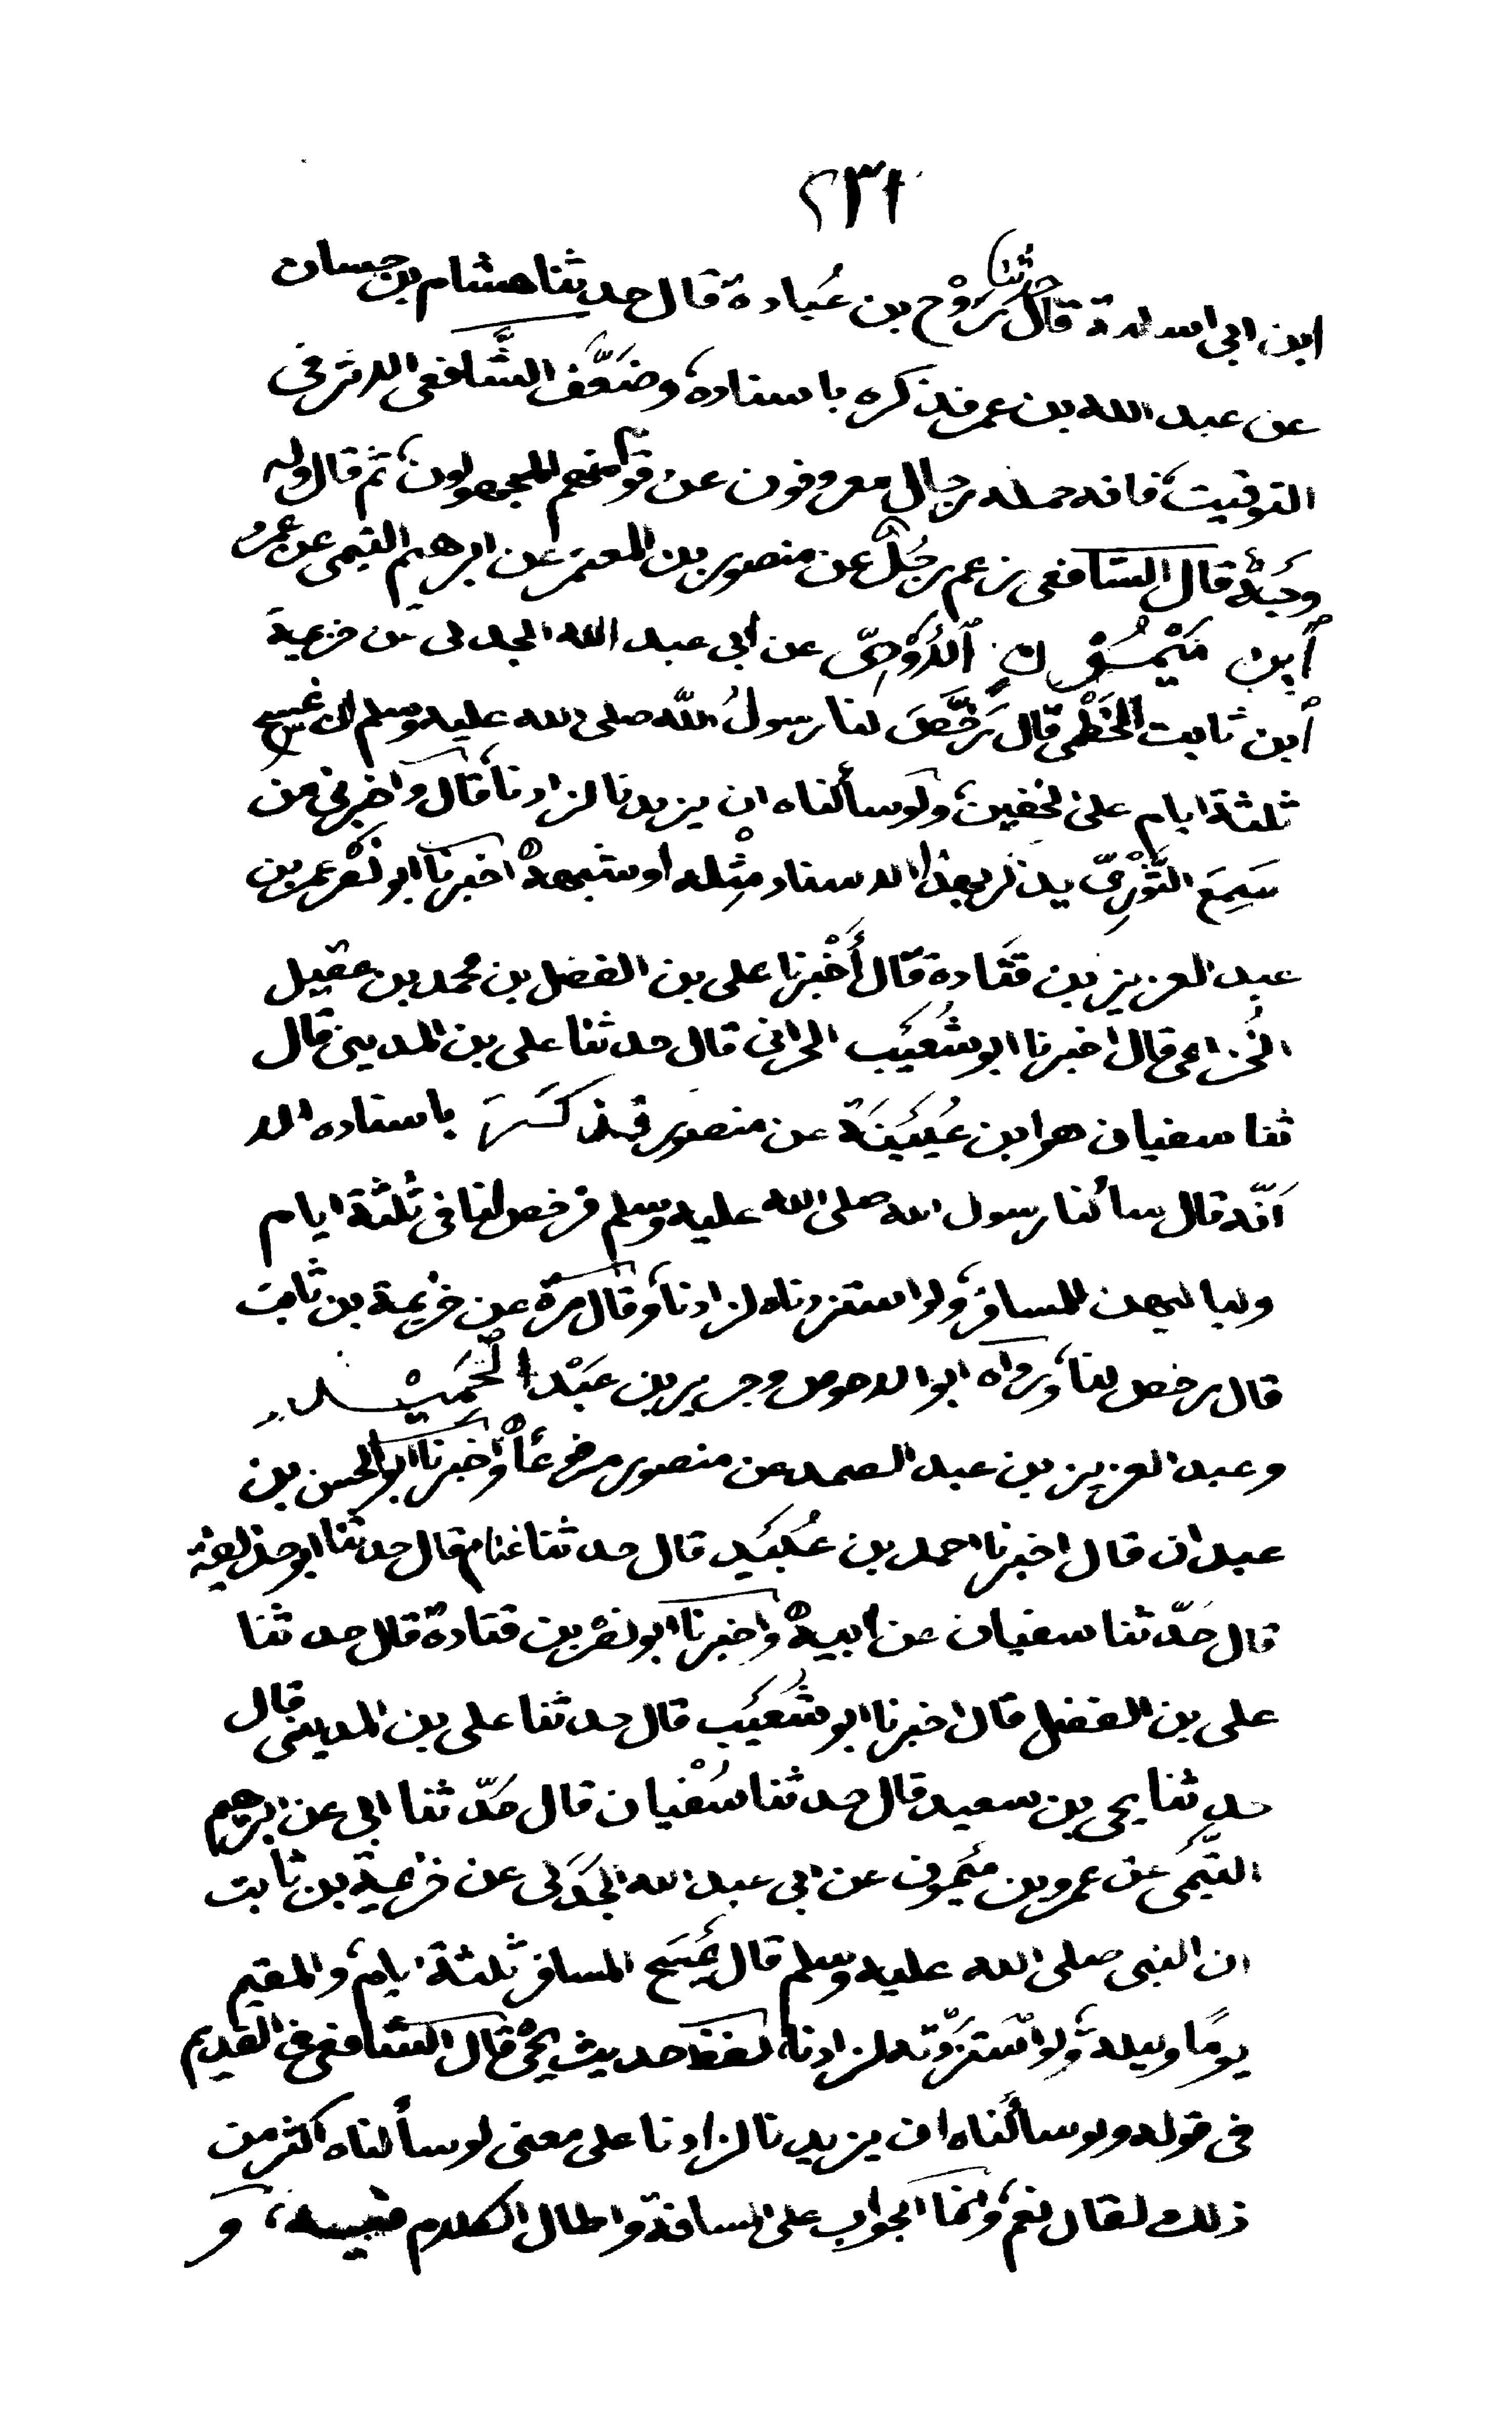 ٢٣٢
ابن ابى اسامة قال حدثنا روح بن عبادة قال حدثنا هشام بن حسان
عن عبد الله بن عمر فذكره باسناده وضعّف الشّافعى الاثر فى
التوقيت، فانه حمله رجال معروفون عن قوم منهم المجهولون، ثم قال وله
وجبة قال الشافعى زعم رجل عن منصور بن المعتمر عن ابرهيم التيمى عن عمرو
ابن ميمون الأَوْدِىّ عن أبى عبد الله الجدلى عن خزيمة
ابن ثابت الخَطْمى قال رَخَّصَ لنا رسولُ اللّه صلى الله عليه وسلم ان نمسح
ثلثة ايام على الخفين، ولو سألناه ان يزيدنا لزادنا، قال واخبرنى من
سَمِعَ الثَّوْرِىّ يذكر بهذا الاسناد مِثْله او شبهه اخبرنا ابو نصر عمر بن
عبد العزيز بن قتادة قال أَخْبرنا على بن الفضل بن محمد بن عقيل
الخُزاعى قال اخبرنا ابو شُعَيْب الحرانى قال حدثنا على بن المدينى قال
ثنا سفيان هو ابن عُيَيْنَة عن منصور فذكَرَه باسناده الا
اَنّه قال سألنا رسول الله صلى الله عليه وسلم فرخص لنا فى ثُلثة ايام
ولياليهن للمسافر، ولو استزدناه لزادنا، وقال مرة عن خزيمة بن ثابت
قال رخص لنا، ورواه ابو الاحوص وجرير بن عَبْد الْحَمِيْد
وعبد العزيز بن عبد الصمد عن منصور مرفوعًا واخبرنا ابو الحسن بن
عبدان قال اخبرنا احمد بن عُبَيْد قال حدثنا غنام قال حدثنا ابو حذيفة
قال حَدّثنا سفيان عن ابيه واخبرنا ابو نصر بن قتادة قال حدثنا
على بن الفضل قال اخبرنا ابو شُعَيْب قال حدثنا على بن المدينى قال
حدثنا يحى بن سعيد قال حدثنا سُفْيان قال حَدّثنا ابى عن ابرهيم
التَّيْمَى عن عمرو بن مَيْمون عن ابى عبد الله الجَدَلى عن خزيمة بن ثابت
ان النبى صلى الله عليه وسلم قال يَمْسَح المسافر ثلثة ايام، والمقيم
يومًا وليلة، ولو اسْتَزَدْته لزادنا، لفظ حديث يحْى قال الشافعى فى القديم
فى قوله ولو سألناه ان يزيدنا لزادنا على معنى لو سألناه اكثر من
ذلك لقال نعم، وانما الجواب على المسافة واطال الكلام فيه، و